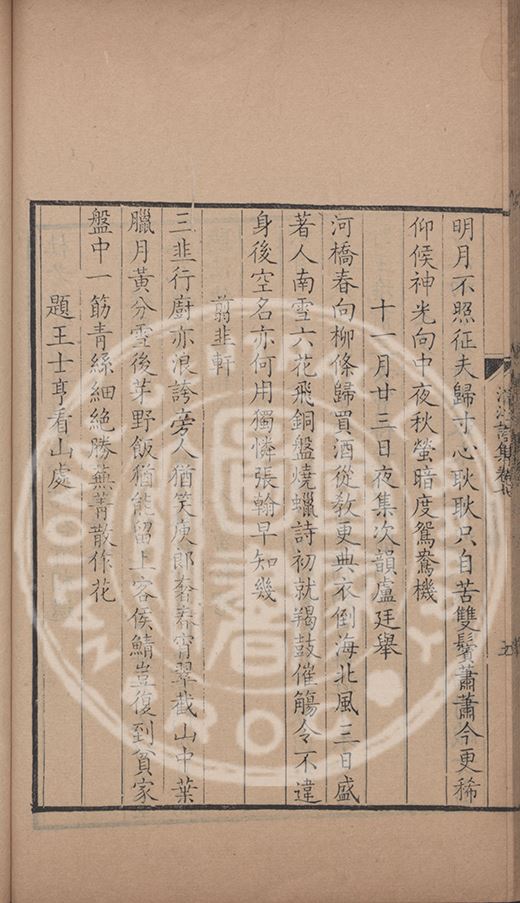 明月不照征夫歸寸心耿耿只自苦雙鬢蕭蕭今更稀
仰候神光向中夜秋螢暗度鴛鴦機
十一月廿三日夜集次韻盧廷舉
河橋春向柳條歸買酒從教更典衣倒海北風三日盛
著人南雪六花飛銅盤燒蠟詩初就羯鼓催觴令不違
身後空名亦何用獨憐張翰早知幾
翦韭軒
三韭行廚亦浪誇旁人猶笑庾郎奢春宵翠截山中葉
臘月黃分雪後芽野飯猶能留上客侯鯖豈復到貧家
盤中一筯青絲細絶勝蕪菁散作花
題王士亨看山處
五